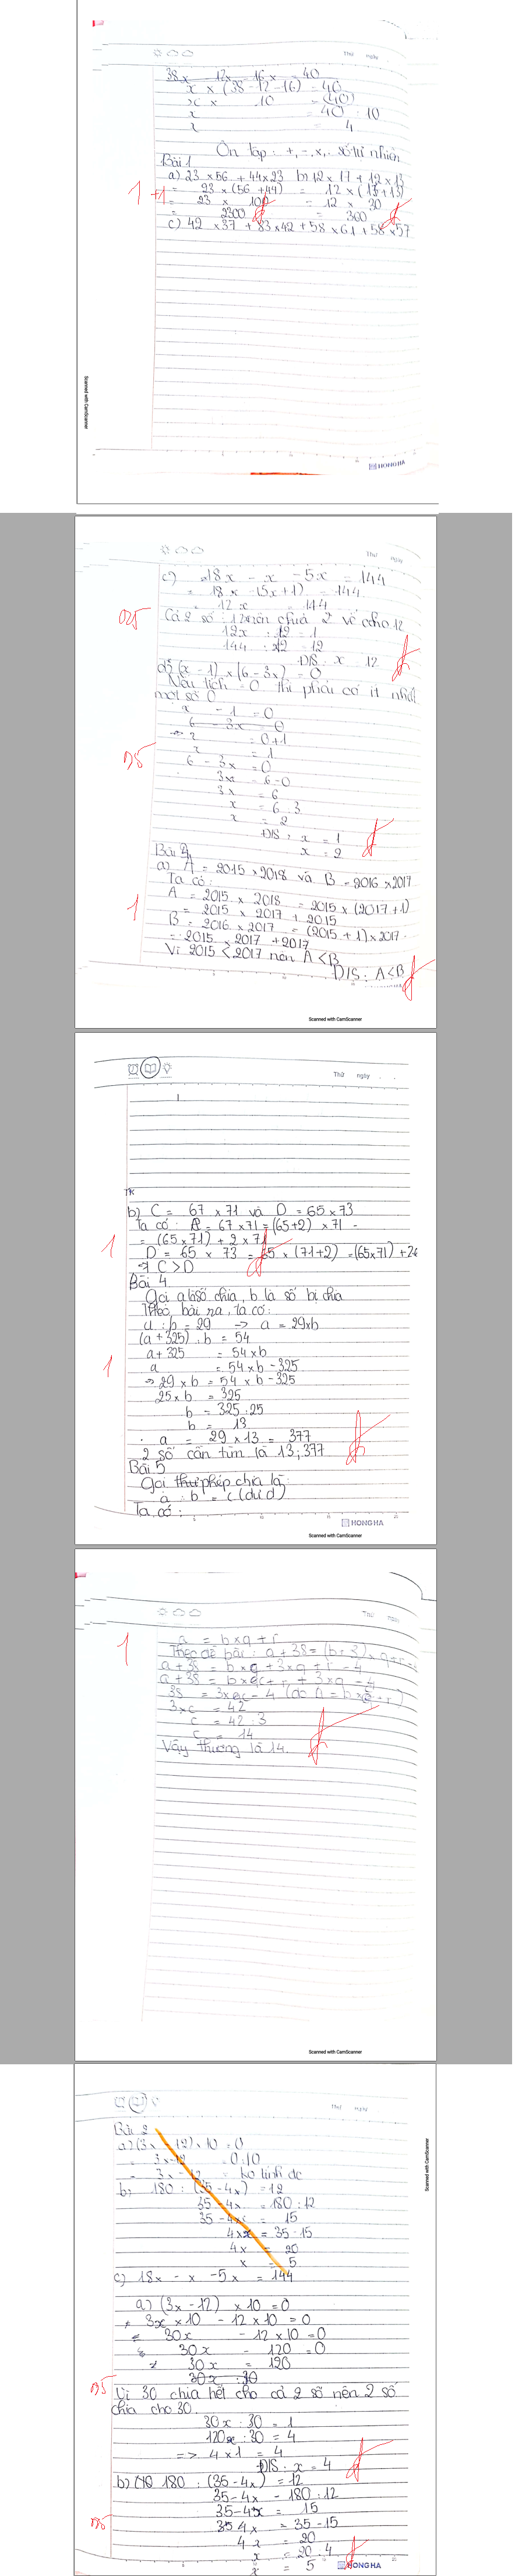 Thứ ngày
38x - 12x - 16x = 40
x × (38 - 12 - 16) = 40
x × 10 = (40)
x = 40 : 10
x = 4
Ôn tập : +, -, x, : số tự nhiên
Bài 1
a) 23 × 56 + 44 × 23 b) 12 × 17 + 12 × 13
1 +1 = 23 × (56 + 44) = 12 × (17 + 13)
= 23 × 100 = 12 × 30
= 2300 = 360
c) 42 × 37 + 83 × 42 + 58 × 61 + 58 × 57
HONG HA
Scanned with CamScanner
Thứ ngày
c) 18x - x - 5x = 144
= 18x - (5x + 1) = 144
= 12x = 144
025 Cả 2 số : 12 nên chia 2 vế cho 12
12x : 12 = 1
144 : 12 = 12
Đ/S : x = 12
d) (x - 1) × (6 - 3x) = 0
Nếu tích = 0 thì phải có ít nhất
một số 0
x - 1 = 0
6 - 3x = 0
=> x = 0 + 1
x = 1
6 - 3x = 0
3x = 6 - 0
3x = 6
x = 6 : 3
x = 2
Đ/S : x = 1
x = 2
a) A = 2015 × 2018 và B = 2016 × 2017
Ta có :
A = 2015 × 2018 = 2015 × (2017 + 1)
1 = 2015 × 2017 + 2015
B = 2016 × 2017 = (2015 + 1) × 2017
= 2015 × 2017 + 2017
Vì 2015 < 2017 nên A < B
Đ/S : A < B
Scanned with CamScanner
Thứ ngày
TK
b) C = 67 × 71 và D = 65 × 73
Ta có : = 67 × 71 = (65 + 2) × 71 -
1 = (65 × 71) + 2 × 71
D = 65 × 73 = 65 × (71 + 2) = (65 × 71) +
=> C > D
Bài 4
Gọi a là số chia, b là số bị chia
Theo bài ra, ta có :
a : b = 29 -> a = 29 × b
(a + 325) : b = 54
a + 325 = 54 × b
1 a = 54 × b - 325
=> 29 × b = 54 × b - 325
25 × b = 325
b = 325 : 25
b = 13
a = 29 × 13 = 377
2 số cần tìm là 13 ; 377
Bài 5
Gọi phép chia là :
a : b = c (dư d)
Ta có :
HONG HA
Scanned with CamScanner
Thứ ngày
1 a = b × q + r
Theo đề bài : a + 38 = (b + 3) × q + r - 4
a + 38 = b × q + 3 × q + r - 4
a + 38 = b × q + r + 3 × q - 4
38 = 3 × c - 4 (do a = b × q + r)
3 × c = 42
c = 42 : 3
c = 14
Vậy thương là 14.
Scanned with CamScanner
Thứ ngày
Bài 2
a) (3x - 12) × 10 = 0
= 3x - 12 = 0 : 10
= 3x - 12 = ko tính đc
b) 180 : (35 - 4x) = 12
35 - 4x = 180 : 12
35 - 4x = 15
4x = 35 - 15
4x = 20
x = 5
c) 18x - x - 5x = 144
a) (3x - 12) × 10 = 0
3x × 10 - 12 × 10 = 0
30x - 12 × 10 = 0
30x - 120 = 0
30x = 120
30x : 30
Vì 30 chia hết cho cả 2 số nên 2 số
chia cho 30.
30x : 30 = 1
120 : 30 = 4
=> 4 × 1 = 4
Đ/S : x = 4
b) 180 : (35 - 4x) = 12
35 - 4x = 180 : 12
35 - 4x = 15
4x = 35 - 15
4x = 20
x = 20 : 4
x = 5
HONG HA
Scanned with CamScanner